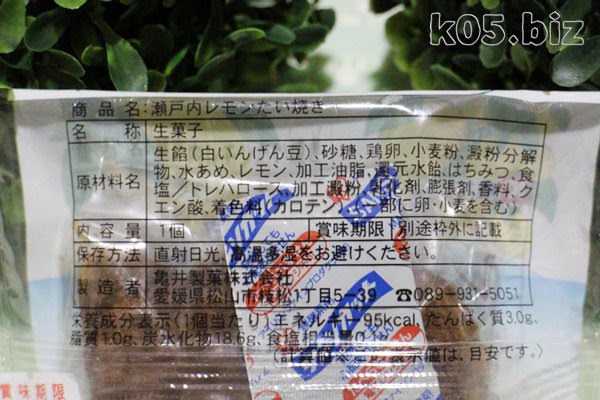 k05.biz
商品名:瀬戸内レモンたい焼き
名称 生菓子
原材料名
生餡(白いんげん豆)、砂糖、鶏卵、小麦粉、澱粉分解
物、水あめ、レモン、加工油脂、還元水飴、はちみつ、食
塩/トレハロース、加工澱粉、乳化剤、膨張剤、香料、ク
エン酸、着色料(カロテン)、(一部に卵・小麦を含む)
内容量 1個 賞味期限 別途枠外に記載
保存方法 直射日光、高温多湿をお避けください。
製造者
亀井製菓株式会社
愛媛県松山市枝松1丁目5-39 ☎089-931-5051
栄養成分表示(1個当たり)エネルギー95kcal、たんぱく質3.0g、
脂質1.0g、炭水化物18.6g、食塩相当量
表示値は、目安です。)
賞味期限